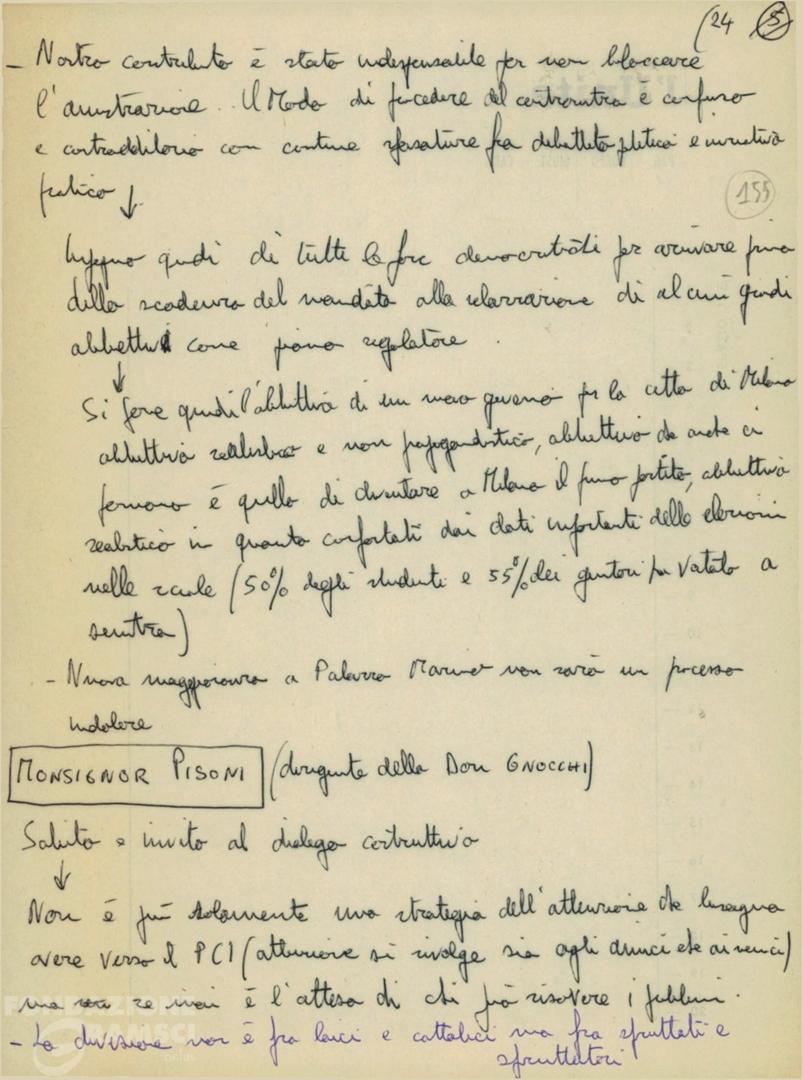 (24 5
- Nostro contributo è stato indispensabile per non bloccare
l'amministrazione. Il Modo di procedere del centrosinistra è confuso
e contraddittorio con continue sfasature fra dibattito politico e iniziativa
pratica ↓
155
Impegno quindi di tutte le forze democratiche per arrivare prima
della scadenza del mandato alla realizzazione di alcuni grandi
obbiettivi come piano regolatore.
↓
Si pone quindi l'obbiettivo di un nuovo governo per la città di Milano
obbiettivo realistico e non propagandistico, obbiettivo che anche ci
poniamo è quello di diventare a Milano il primo partito, obbiettivo
realistico in quanto confortati dai dati importanti delle elezioni
nelle scuole (50% degli studenti e 55% dei genitori ha votato a
sinistra)
- Nuova maggioranza a Palazzo Marino non sarà un processo
indolore
MONSIGNOR PISONI (dirigente della Don GNOCCHI)
Saluto e invito al dialogo costruttivo
↓
Non è più solamente una strategia dell'attenzione che bisogna
avere verso il PCI (attenzione si rivolge sia agli amici che ai nemici)
ma se mai è l'attesa di chi può risolvere i problemi.
- La divisione non è fra laici e cattolici ma fra sfruttati e
sfruttatori
FONDAZIONE
GRAMSCI
onlus